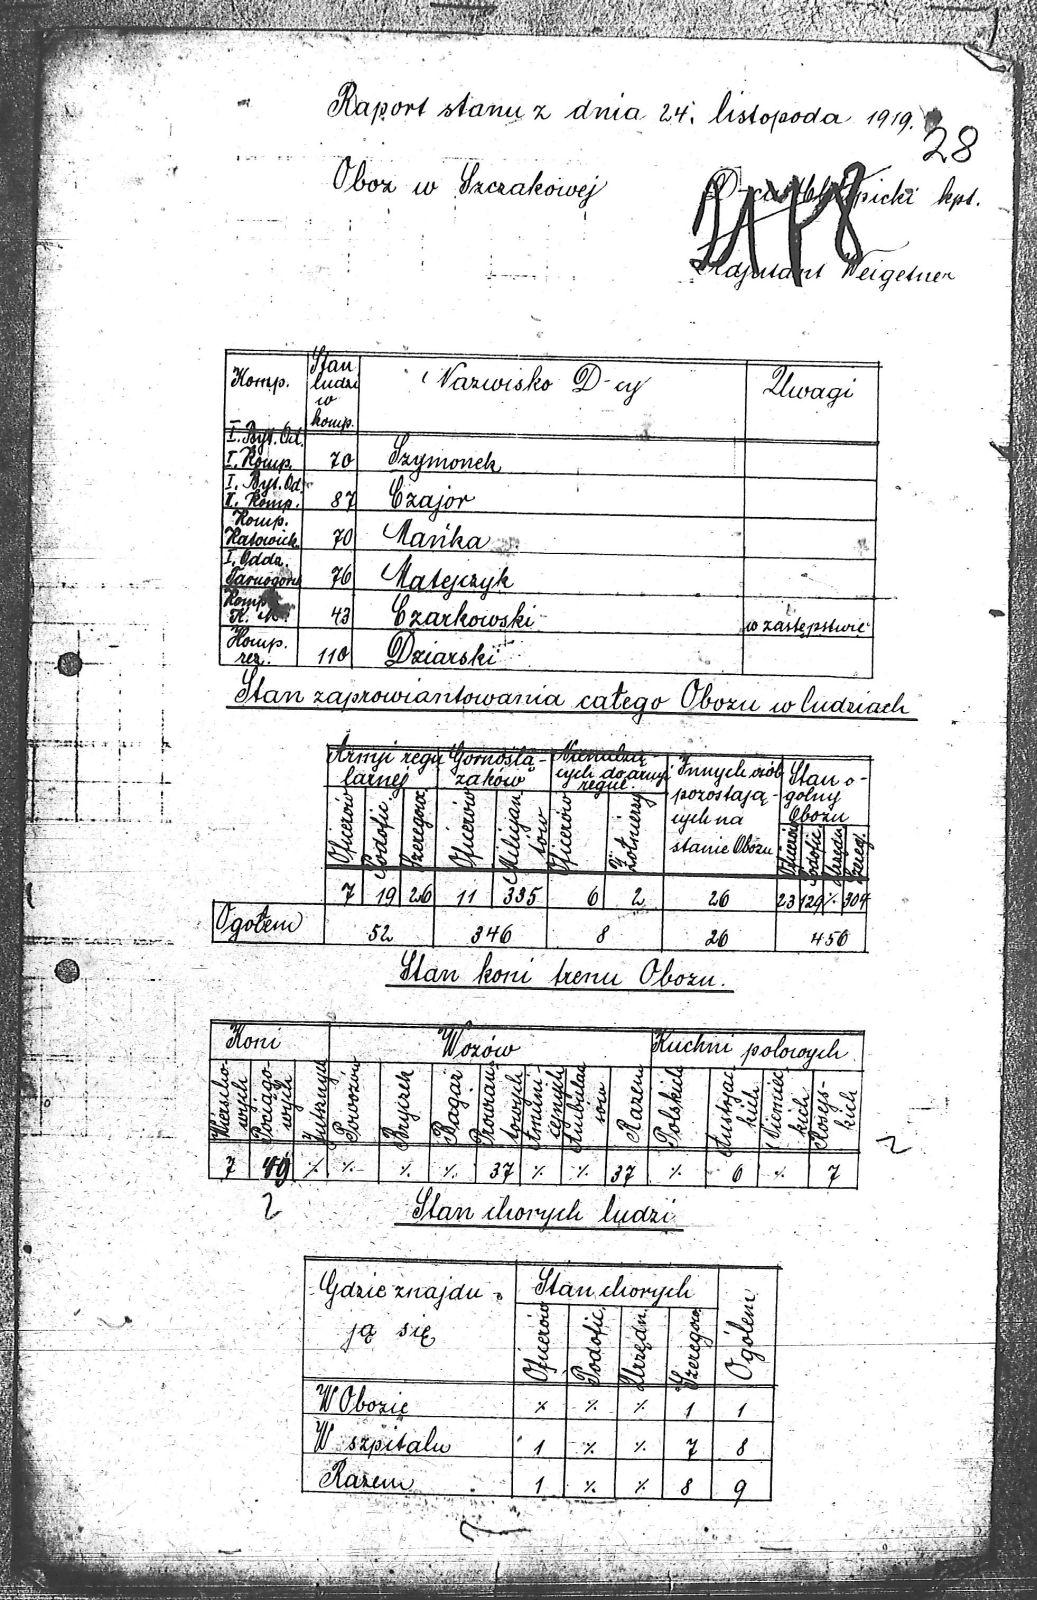 Raport stanu z dnia 24. listopada 1919.
28
Oboz w Szczakowej
kpt.
Adjutant Weigetner
Komp. Stan ludzi w komp. Nazwisko D-cy Uwagi
I. Byt. Od. I. Komp. 70 Szymonek
I. Byt. Od. II. Komp. 87 Czajor
Komp. Katowick. 70 Mańka
I. Odda. Tarnogórs 76 Matejczyk
Komp. K. M. 43 Czarkowski w zastępstwie
Komp. rez. 110 Dziarski
Stan zaprowiantowania całego Obozu w ludziach
Armji regu larnej Gornoślą- zaków Nienależą cych do armji regul. Innych osób pozostają- cych na stanie Obozu Stan o- gólny Obozu
Oficerów Podofic. Szeregow. Oficerów Milicjan tow Oficerów Żołnierzy Oficerów Podofic. Urzędn. Szereg.
7 19 26 11 335 6 2 26 23 129 ./. 304
Ogółem 52 346 8 26 456
Stan koni trenu Obozu.
Koni Wozów Kuchni polowych
Wierzcho wych Pociągo- wych Jucznych Powozów Bryczek Bagaż Prowian towych Amuni- cyjnych Ambulan sow Razem Polskich Austrjac kich Niemiec kich Rosyjs- kich
7 49 ./. ./. ./. ./. 37 ./. ./. 37 ./. 6 ./. 7
2
2
Stan chorych ludzi
Gdzie znajdu ją się Stan chorych Ogółem
Oficerów Podofic. Urzędn. Szeregow.
W Obozie ./. ./. ./. 1 1
W szpitalu 1 ./. ./. 7 8
Razem 1 ./. ./. 8 9